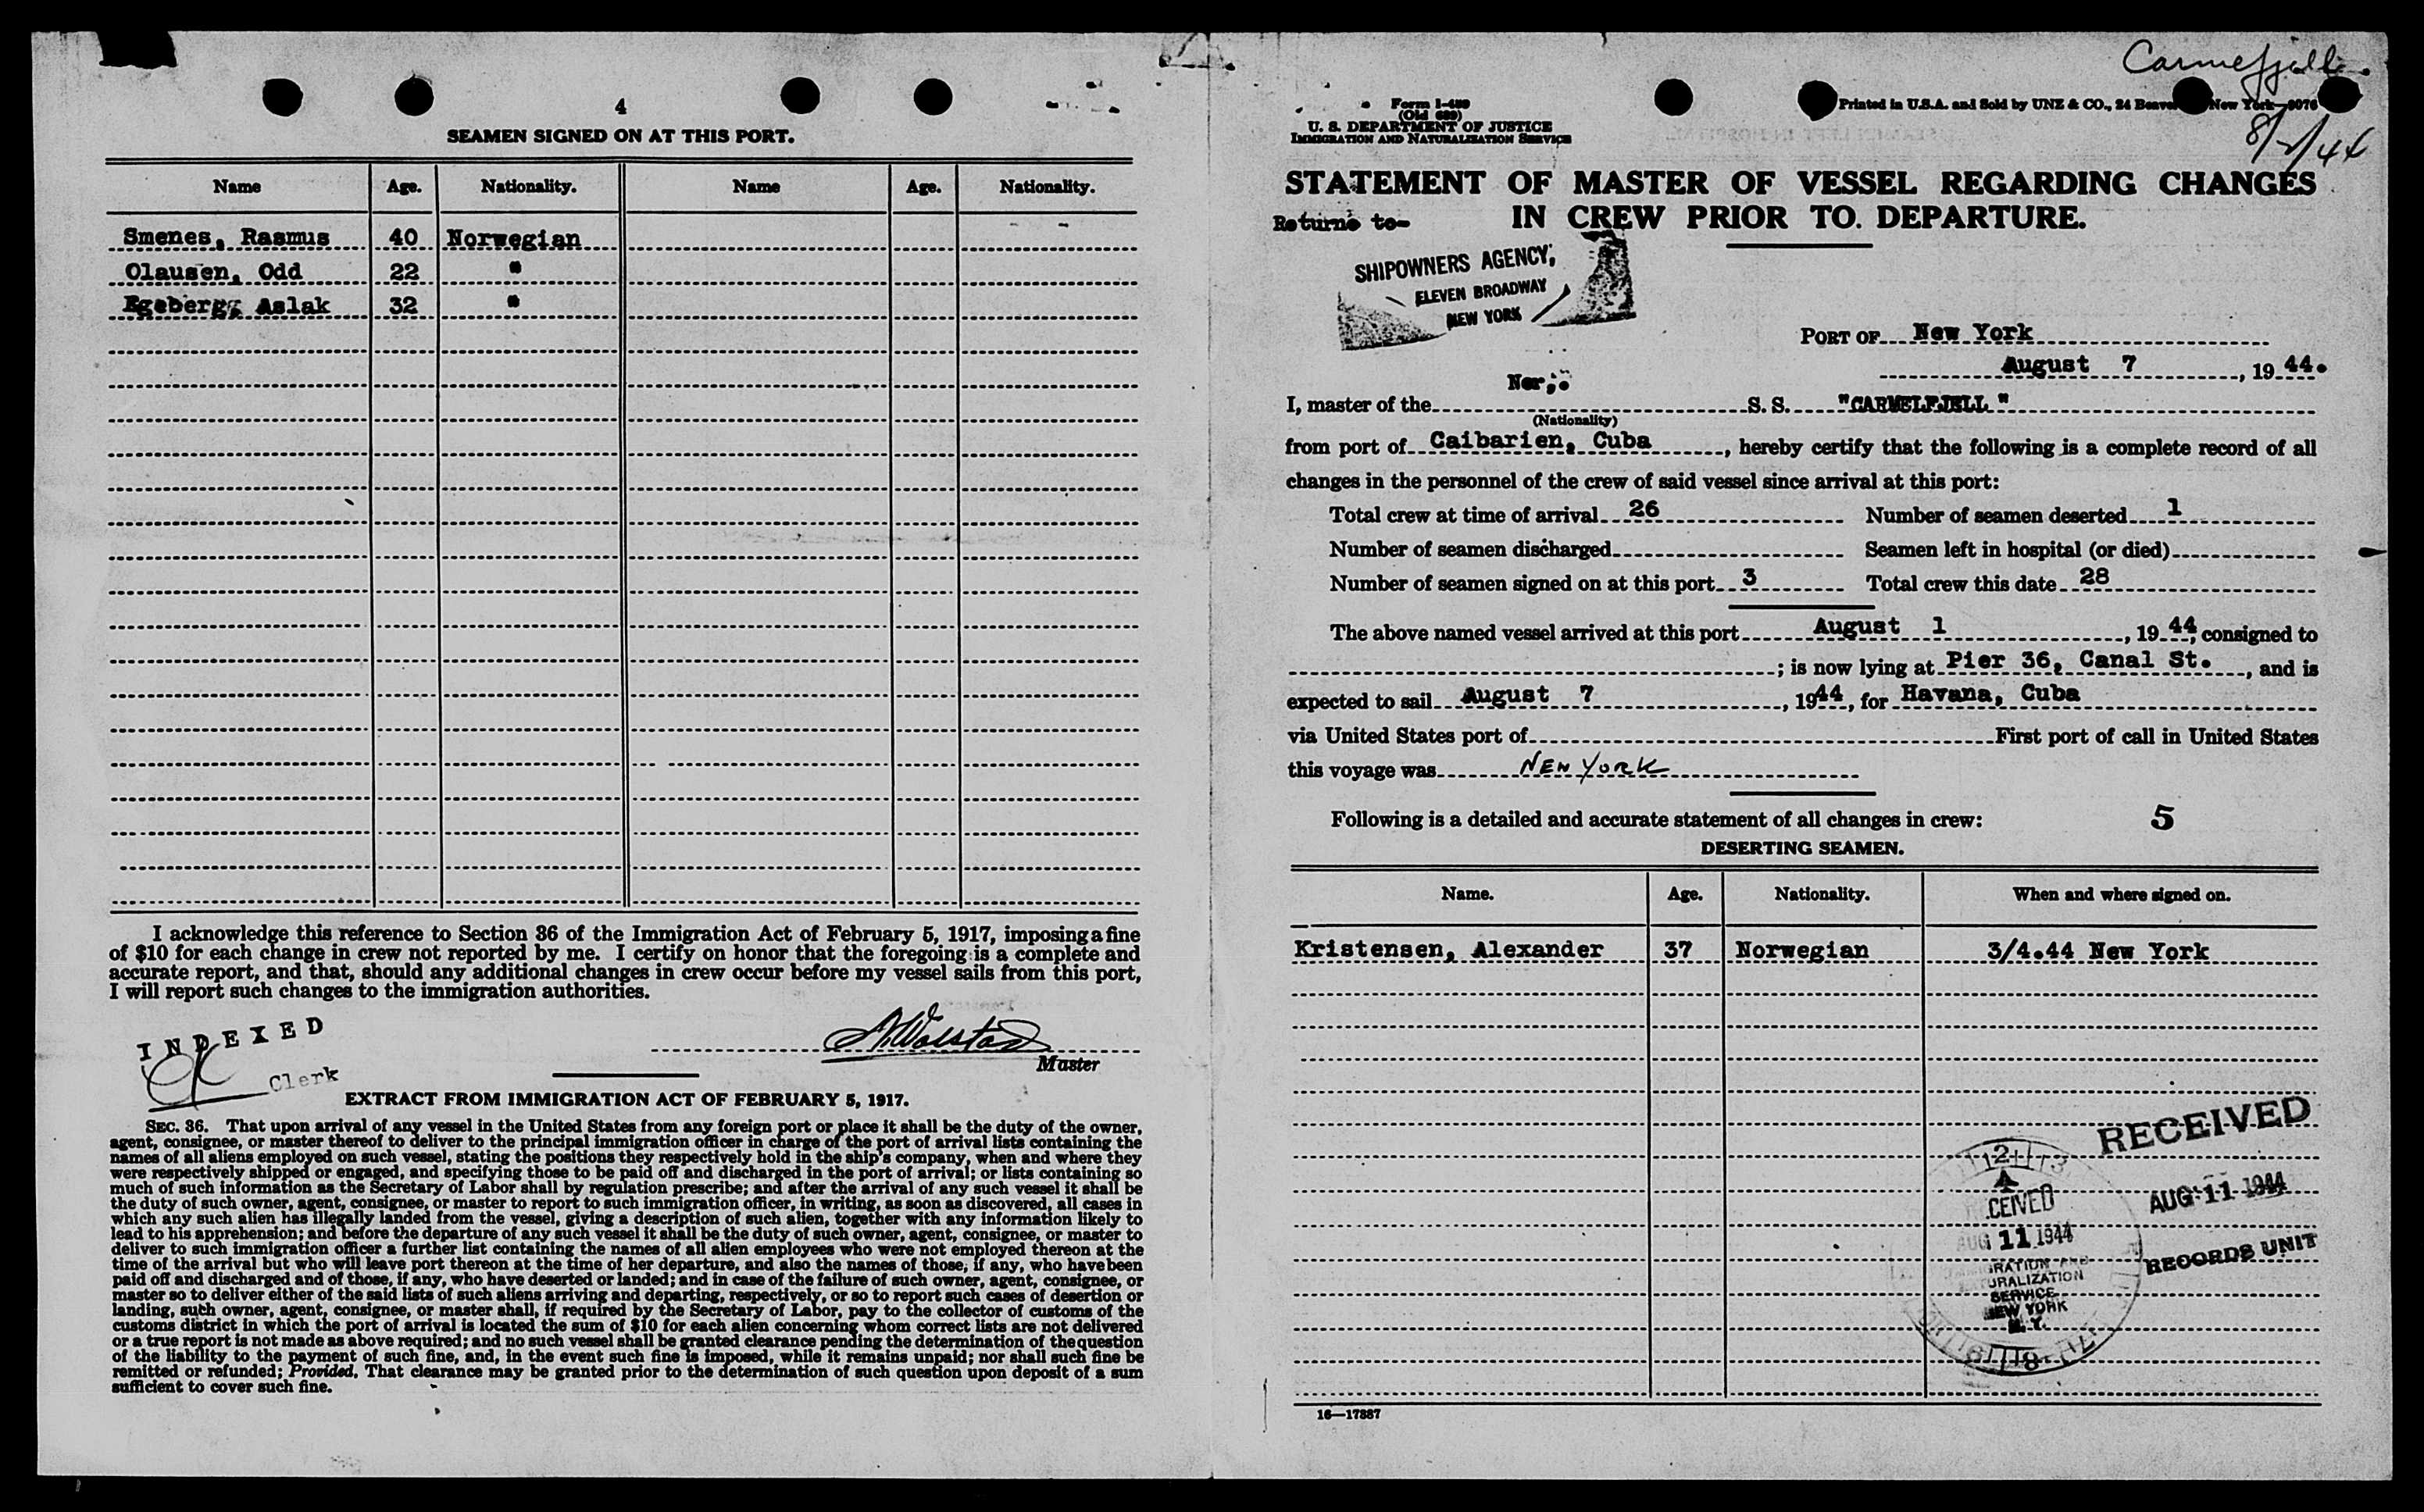 4
SEAMEN SIGNED ON AT THIS PORT.
Name Age. Nationality. Name Age. Nationality.
Smenes, Rasmus 40 Norwegian
Olausen, Odd 22 "
Egeberg, Aslak 32 "
I acknowledge this reference to Section 36 of the Immigration Act of February 5, 1917, imposing a fine
of $10 for each change in crew not reported by me. I certify on honor that the foregoing is a complete and
accurate report, and that, should any additional changes in crew occur before my vessel sails from this port,
I will report such changes to the immigration authorities.
INDEXED
Clerk
Master
EXTRACT FROM IMMIGRATION ACT OF FEBRUARY 5, 1917.
SEC. 36. That upon arrival of any vessel in the United States from any foreign port or place it shall be the duty of the owner,
agent, consignee, or master thereof to deliver to the principal immigration officer in charge of the port of arrival lists containing the
names of all aliens employed on such vessel, stating the positions they respectively hold in the ship's company, when and where they
were respectively shipped or engaged, and specifying those to be paid off and discharged in the port of arrival; or lists containing so
much of such information as the Secretary of Labor shall by regulation prescribe; and after the arrival of any such vessel it shall be
the duty of such owner, agent, consignee, or master to report to such immigration officer, in writing, as soon as discovered, all cases in
which any such alien has illegally landed from the vessel, giving a description of such alien, together with any information likely to
lead to his apprehension; and before the departure of any such vessel it shall be the duty of such owner, agent, consignee, or master to
deliver to such immigration officer a further list containing the names of all alien employees who were not employed thereon at the
time of the arrival but who will leave port thereon at the time of her departure, and also the names of those, if any, who have been
paid off and discharged and of those, if any, who have deserted or landed; and in case of the failure of such owner, agent, consignee, or
master so to deliver either of the said lists of such aliens arriving and departing, respectively, or so to report such cases of desertion or
landing, such owner, agent, consignee, or master shall, if required by the Secretary of Labor, pay to the collector of customs of the
customs district in which the port of arrival is located the sum of $10 for each alien concerning whom correct lists are not delivered
or a true report is not made as above required; and no such vessel shall be granted clearance pending the determination of the question
of the liability to the payment of such fine, and, in the event such fine is imposed, while it remains unpaid; nor shall such fine be
remitted or refunded; Provided, That clearance may be granted prior to the determination of such question upon deposit of a sum
sufficient to cover such fine.
Carmelfjell
Form I-489
(Old 689)
U. S. DEPARTMENT OF JUSTICE
IMMIGRATION AND NATURALIZATION SERVICE
Printed in U.S.A. and Sold by UNZ & CO., 24 Beaver New York—9076
STATEMENT OF MASTER OF VESSEL REGARDING CHANGES
IN CREW PRIOR TO DEPARTURE.
Returne to-
SHIPOWNERS AGENCY,
ELEVEN BROADWAY
NEW YORK
PORT OF New York
August 7, 1944.
I, master of the Nor. S. S. "CARMELFJELL"
(Nationality)
from port of Caibarien, Cuba, hereby certify that the following is a complete record of all
changes in the personnel of the crew of said vessel since arrival at this port:
Total crew at time of arrival 26 Number of seamen deserted 1
Number of seamen discharged Seamen left in hospital (or died)
Number of seamen signed on at this port 3 Total crew this date 28
The above named vessel arrived at this port August 1, 1944, consigned to
; is now lying at Pier 36, Canal St., and is
expected to sail August 7, 1944, for Havana, Cuba
via United States port of First port of call in United States
this voyage was NEW YORK
Following is a detailed and accurate statement of all changes in crew: 5
DESERTING SEAMEN.
Name. Age. Nationality. When and where signed on.
Kristensen, Alexander 37 Norwegian 3/4.44 New York
RECEIVED
AUG 11 1944
RECORDS UNIT
12
CEIVED
AUG 11 1944
NEW YORK
N.Y.
16—17887